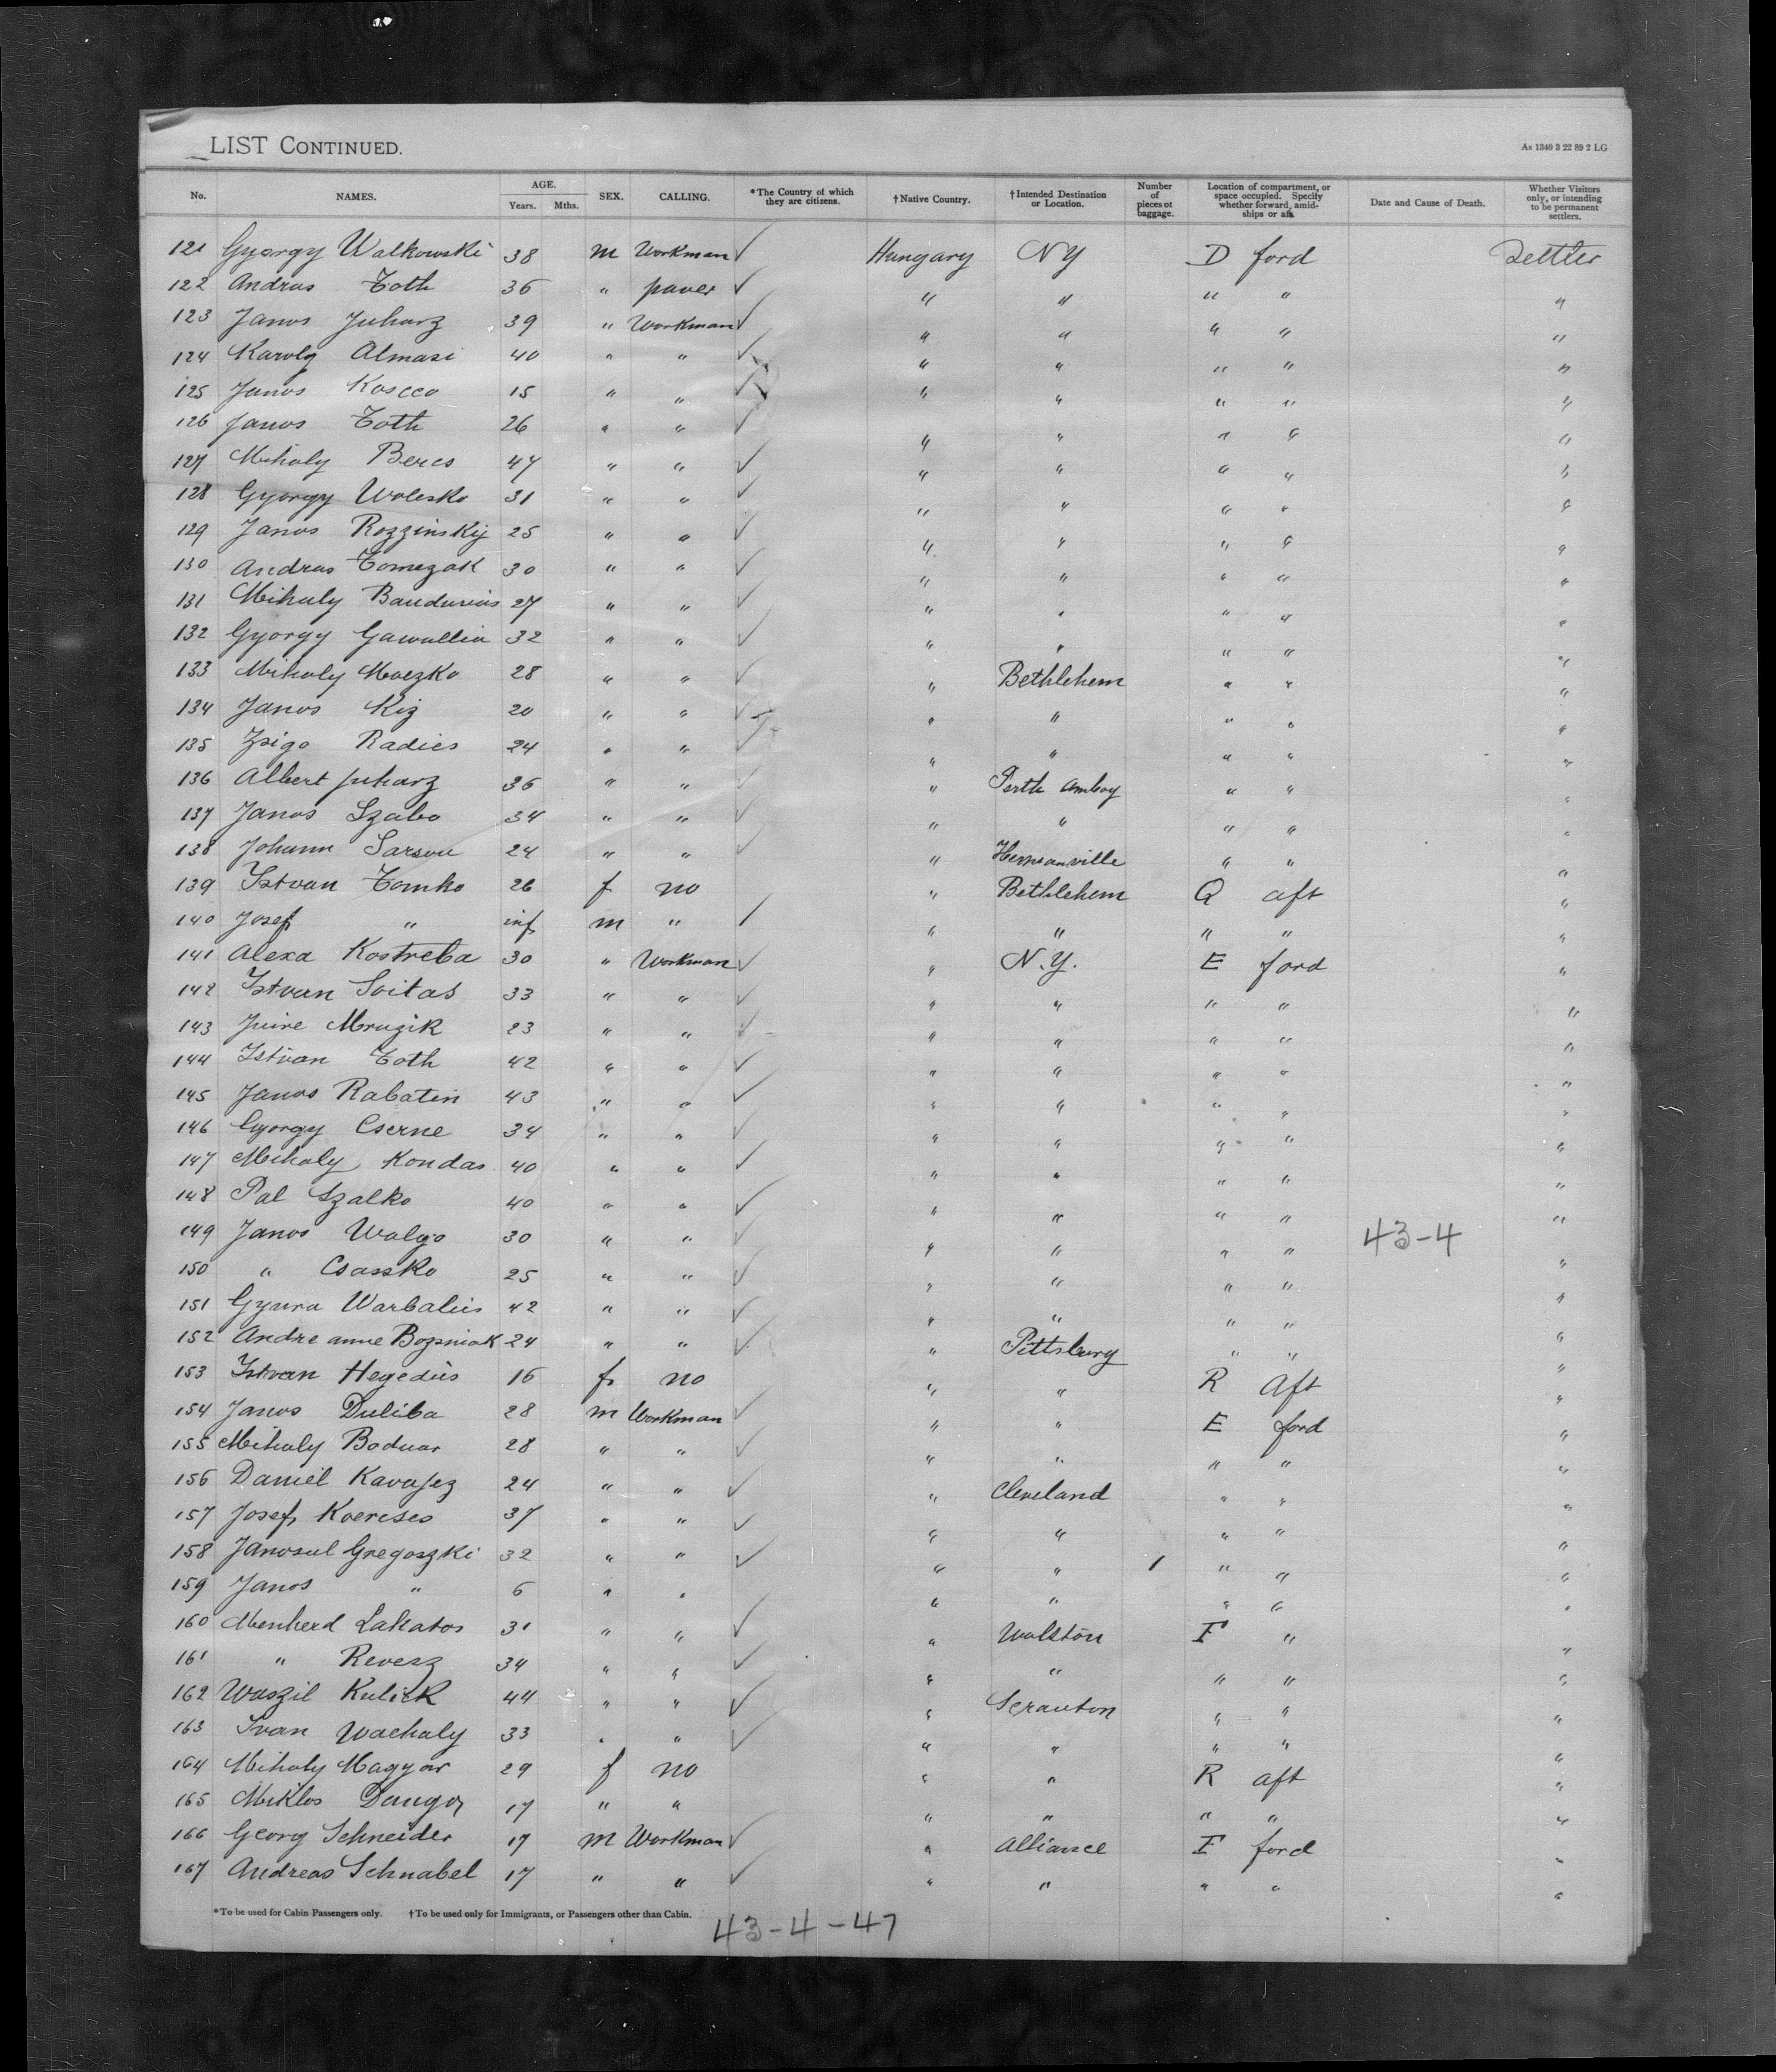 LIST CONTINUED.
As 1340 3 22 89 2 LG
No. NAMES. AGE. Years. Mths. SEX. CALLING. *The Country of which they are citizens. †Native Country. †Intended Destination or Location. Number of pieces of baggage. Location of compartment, or space occupied. Specify whether forward, amidships or aft. Date and Cause of Death. Whether Visitors only, or intending to be permanent settlers.
121 Gyorgy Walkowski 38 m Workman ✓ Hungary NY D ford Settler
122 Andras Toth 36 " paver ✓ " " " " "
123 Janos Juharz 39 " Workman ✓ " " " " "
124 Karoly Almasi 40 " " ✓ " " " " "
125 Janos Koscco 15 " " ✓ " " " " "
126 Janos Toth 26 " " ✓ " " " " "
127 Mihaly Beres 47 " " ✓ " " " " "
128 Gyorgy Wolesko 31 " " ✓ " " " " "
129 Janos Rozzinskij 25 " " ✓ " " " " "
130 Andras Tomezak 30 " " ✓ " " " " "
131 Mihaly 27 " " ✓ " " " " "
132 Gyorgy Gawallia 32 " " ✓ " " " " "
133 Mihaly Moezko 28 " " ✓ " Bethlehem " " "
134 Janos Kiz 20 " " ✓ " " " " "
135 Zsigo Radics 24 " " ✓ " " " " "
136 Albert Juharz 36 " " ✓ " Perth Amboy " " "
137 Janos Szabo 34 " " ✓ " " " " "
138 Johann 24 " " ✓ " " " "
139 Istvan Tomko 26 f no " Bethlehem Q aft "
140 Josef " inf m " / " " " " "
141 Alexa Kostreba 30 " Workman ✓ " N.Y. E ford "
142 Istvan Soitas 33 " " ✓ " " " " "
143 Juire Mruzik 23 " " ✓ " " " " "
144 Istvan Toth 42 " " ✓ " " " " "
145 Janos Rabatin 43 " " ✓ " " " " "
146 Gyorgy Cserne 34 " " ✓ " " " " "
147 Mihaly Kondas 40 " " ✓ " " " " "
148 Pal Szalko 40 " " ✓ " " " " "
149 Janos Walgo 30 " " ✓ " " " " 43-4 "
150 " Csassko 25 " " ✓ " " " " "
151 Gyura Warbalies 42 " " ✓ " " " " "
152 Andre anne Bozsniak 24 " " ✓ " Pittsburg " " "
153 Istvan Hegedüs 16 f no " " R Aft "
154 Janos Duliba 28 m Workman ✓ " " E ford "
155 Mihaly Bodnar 28 " " ✓ " " " " "
156 Daniel 24 " " ✓ " Cleveland " " "
157 Josef 37 " " ✓ " " " " "
158 Janosul Gregoszki 32 " " ✓ " " 1 " " "
159 Janos " 6 " " " " " " "
160 Menherd Lakatos 31 " " ✓ " Walston F " "
161 " Revesz 34 " " ✓ " " " " "
162 Waszil Kulick 44 " " ✓ " Scranton " " "
163 Ivan Wachaly 33 " " ✓ " " " " "
164 Mihaly Magyar 29 f no " " R aft "
165 Miklos 17 " " " " " " "
166 Georg Schneider 17 m Workman ✓ " Alliance F ford "
167 Andreas Schnabel 17 " " ✓ " " " " "
*To be used for Cabin Passengers only. †To be used only for Immigrants, or Passengers other than Cabin.
43-4-47